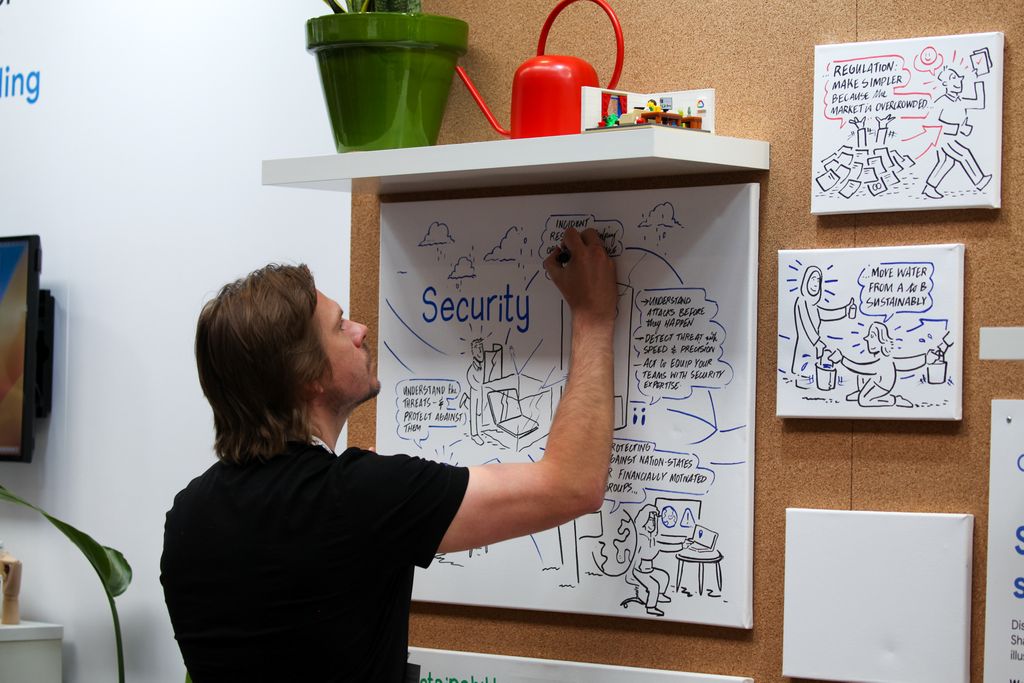 ling
REGULATION:
MAKE SIMPLER
BECAUSE the
MARKET is OVERCROWDED.
INCIDENT
Security
→ UNDERSTAND
ATTACKS BEFORE
they HAPPEN
→ DETECT THREAT with
SPEED & PRECISION
→ ACT & EQUIP YOUR
TEAMS WITH SECURITY
EXPERTISE
UNDERSTAND the
THREATS - &
PROTECT AGAINST
THEM
PROTECTING
AGAINST NATION-STATES
or FINANCIALLY MOTIVATED
GROUPS...
...MOVE WATER
FROM A to B
SUSTAINABLY